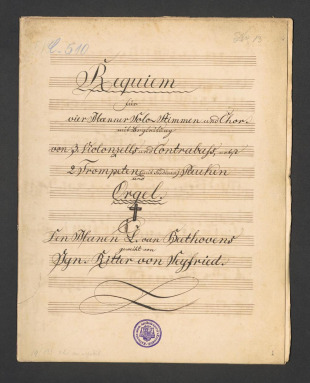 Requiem
für
vier Männer Solo-Stimmen und Chor.
mit Begleitung
von 3 Violonzells und Contrabass, nebst
2 Trompeten Pauken
und
Orgel.
Den Manen L. van Bethovens
geweiht von
Ign. Ritter von Seyfried.